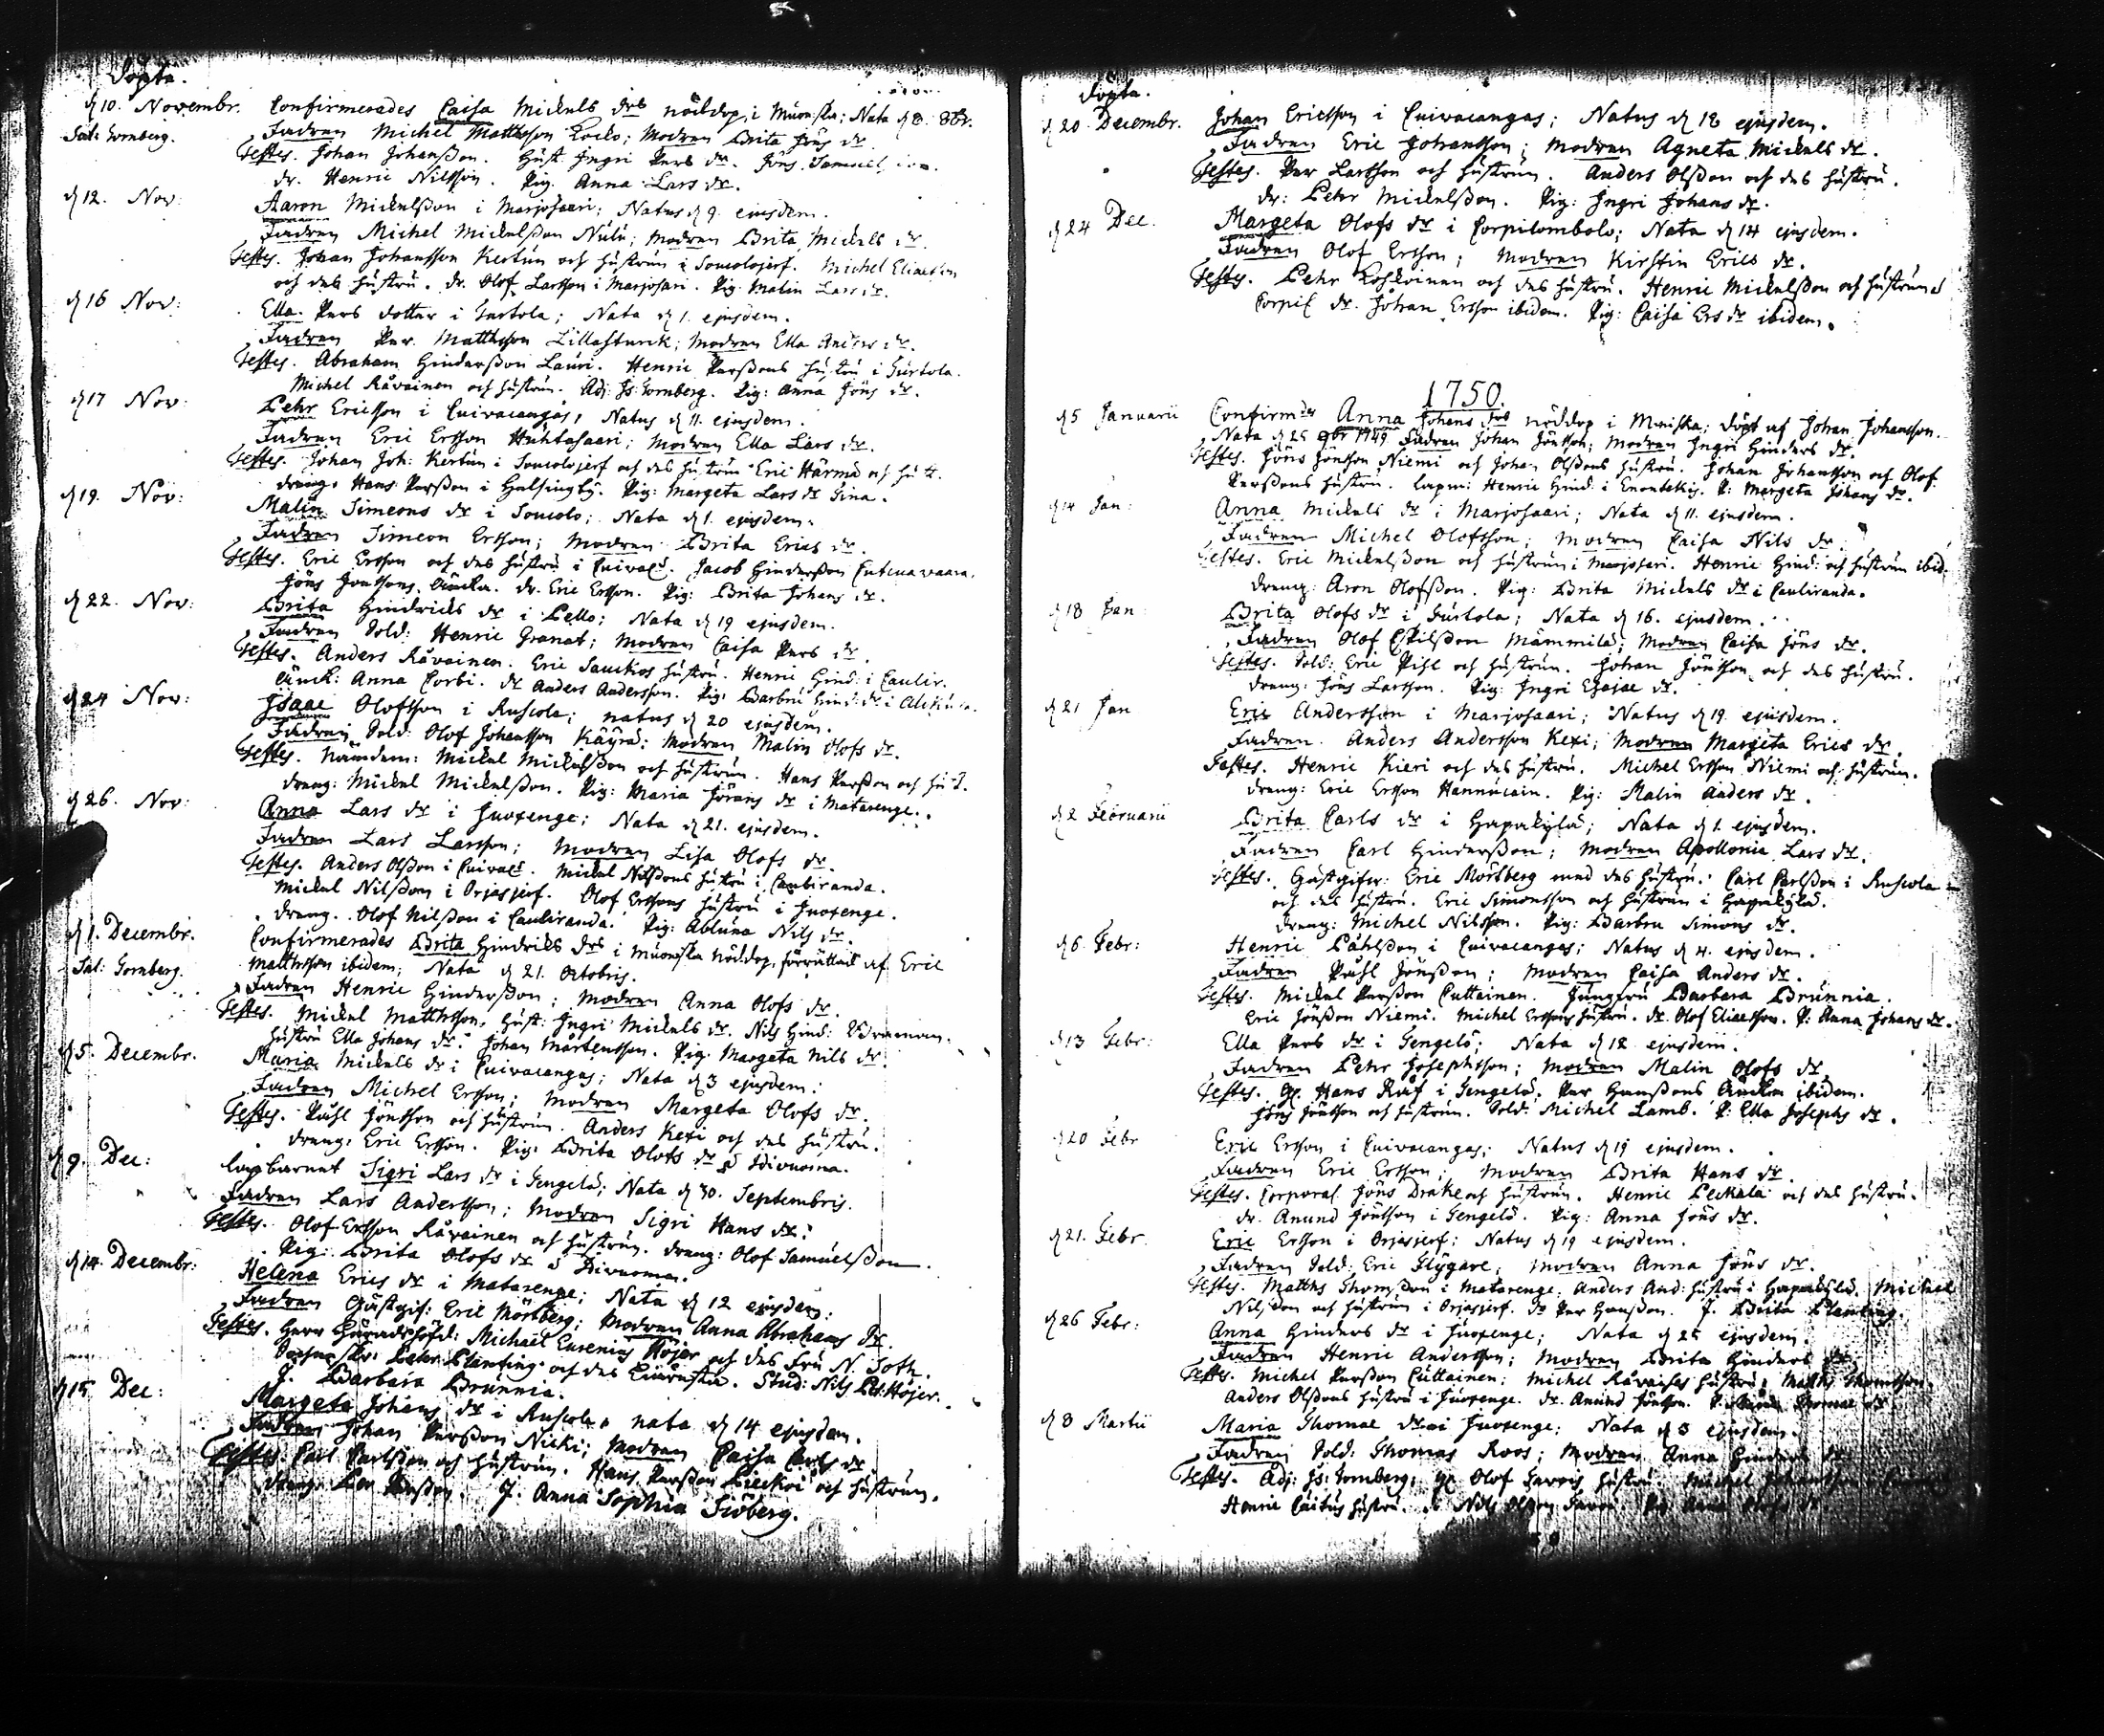 Döpte.
d 10. Novembr. Confirmerades Caisa Mickels drs nöddop, i Muoniska; Nata d 8. 8br.
Sac: Fornberg. Fadren Michel Matthsson Kocko; Modren Brita Jöns dr
Testes. Johan Johansson. Hust. Ingri Pers dr. Jöns Samuels
dr. Henric Nilsson. Pig. Anna Lars dr.
d 12. Nov: Aaron Mickelsson i Marjosaari; Natus d 9. ejusdem.
Fadren Michel Mickelsson Nulu; Modren Brita Mickels dr.
Testes. Johan Johansson Kertun och hustrun i Soucolojerf. Michel Eliaesson
och des hustru. dr. Olof Larsson i Marjosari. Pig. Malin Lars dr.
d 16 Nov: Ella Pers dotter i Turtola; Nata d 1. ejusdem.
Fadren Per Matthsson Lillasturck; Modren Ella Anders dr.
Testes. Abraham Hindersson Lauri. Henric Perssons hustru i Turtola.
Michel Råvainen och hustrun. Adj. Is: Fornberg. Pig: Anna Jöns dr.
d 17 Nov: Pehr Ericsson i Cuivacangas, Natus d 11. ejusdem.
Fadren Eric Ersson Huhtasaari; Modren Ella Lars dr.
Testes. Johan Joh: Kertun i Soucolojerf och des hustrun Eric Härmä och hust.
dräng. Hans Persson i Helsingby. Pig: Margeta Lars dr Sina.
d 19. Nov: Malin Simeons dr i Soucolo; Nata d 1. ejusdem.
Fadren Simeon Ersson; Modren Brita Erics dr.
Testes. Eric Ersson och des hustru i Cuivac. Jacob Hindersson Cutenavaara.
Jöns Jonssons Änckan. dr. Eric Ersson. Pig: Brita Johans dr.
d 22. Nov: Brita Hindricks dr i Pello; Nata d 19 ejusdem.
Fadren Sold: Henric Granat; Modren Caisa Pers dr.
Testes. Anders Råvainen. Eric Sauckos hustru. Henric Hind: i Caulir.
Änck: Anna Corbi. dr Anders Andersson. Pig: Barbru Hind: dr i
d 24 Nov: Isaac Olofsson i Ruscola; natus d 20 ejusdem.
Fadren Sold: Olof Johansson Käyrä; Modren Malin Olofs dr.
Testes. Nämdem: Mickel Mickelsson och hustrun. Hans Persson och hust.
dräng: Mickel Mickelsson. Pig: Maria Jörans dr i Matarenge.
d 26. Nov: Anna Lars dr i Juoxenge; Nata d 21. ejusdem.
Fadren Lars Larsson; Modren Lisa Olofs dr.
Testes. Anders Olsson i Cuivac. Mickel Nilssons hustru i Cauliranda.
Mickel Nilsson i Orjasjerf. Olof Erssons hustru i Juoxenge.
dräng. Olof Nilsson i Cauliranda. Pig: Abluna Nils dr.
d 1. Decembr. Confirmerades Brita Hindricks drs i Muoniska nöddop, förrättad af Eric
Sac: Fornberg. Matthsson ibidem; Nata d 21. Octobris.
Fadren Henric Hindersson; Modren Anna Olofs dr.
Testes. Mickel Matthsson, Hust: Ingri Mickels dr. Nils Hind:
hustru Ella Johans dr. Johan Mårtensson. Pig: Margeta Nils dr.
d 5. Decembr. Maria Mickels dr i Cuivacangas; Nata d 3 ejusdem.
Fadren Michel Ersson; Modren Margeta Olofs dr.
Testes. Påhl Jönsson och hustrun. Anders Kexi och des hustru.
dräng. Eric Ersson. Pig: Brita Olofs dr
d 9. Dec: Lapbarnet Sigri Lars dr i Tengelå; Nata d 30. Septembris.
Fadren Lars Andersson; Modren Sigri Hans dr.
Testes. Olof Ersson Råvainen och hustrun. dräng: Olof Samuelsson.
Pig: Brita Olofs dr
d 14. Decembr: Helena Erics dr i Matarenge; Nata d 12 ejusdem.
Fadren Gästgif: Eric Mörtberg; Modren Anna Abrahams dr.
Testes. Herr Häradshöfd: Michael Eurenius Höjer och des Fru N. Foth.
Pehr Planting och des Stud: Nils Höjer.
J. Barbara Brunnia.
d 15 Dec: Margeta Johans dr i Ruscola, nata d 14 ejusdem.
Fadren Johan Persson Nicki; Modren Caisa Carls dr
Testes. Carl Carlsson och hustrun. Hans Persson och hustrun.
dräng. Persson. J. Anna Sophia Siöberg.
Döpte.
d. 20 Decembr. Johan Ericsson i Cuivacangas; Natus d 18 ejusdem.
Fadren Eric Johansson; Modren Agneta Mickels dr.
Testes. Per Larsson och hustrun. Anders Olsson och des hustru.
dr: Pehr Mickelsson. Pig: Ingri Johans dr.
d 24 Dec. Margeta Olofs dr i Corpilombolo; Nata d 14 ejusdem.
Fadren Olof Ersson; Modren Kirstin Erics dr.
Testes. Pehr Koskoinen och des hustru. Henric Mickelsson och hustrun i
Corpil. dr. Johan Ersson ibidem. Pig: Caisa Ers dr ibidem.
1750.
d 5 Januarii Confirmdes Anna Johans drs nöddop i Muniska; döpt af Johan Johansson.
Nata d 25 9br 1749 Fadren Johan Jönsson; Modren Ingri Hinders dr.
Testes. Jöns Jönsson Niemi och Johan Olssons hustru. Johan Johansson och Olof
Perssons hustru. Lapm: Henric Hind: i Enontekis. P: Margeta Johans dr.
d 14 Jan: Anna Mickels dr i Marjosaari; Nata d 11. ejusdem.
Fadren Michel Olofsson; Modren Caisa Nils dr.
Testes. Eric Mickelsson och hustrun i Marjosari. Henric Hind: och hustrun ibid.
dräng: Aron Olofsson. Pig: Brita Mickels dr i Cauliranda.
d 18 Jan Brita Olofs dr i Turtola; Nata d 16. ejusdem.
Fadren Olof Eskilsson Mämmilä; Modren Caisa Jöns dr.
Testes. Sold: Eric Pihl och hustrun. Johan Jönsson och des hustru.
dräng: Jöns Larsson. Pig: Ingri Esaiae dr.
d 21 Jan Eric Andersson i Marjosaari; Natus d 19. ejusdem.
Fadren. Anders Andersson Kexi; Modren Margeta Erics dr.
Testes. Henric Kieri och des hustru. Michel Ersson Niemi och hustrun.
dräng: Eric Ersson Hannucain. Pig: Malin Anders dr.
d 2 Februarii Brita Carls dr i Hapakylä; Nata d 1. ejusdem.
Fadren Carl Hindersson; Modren Apollonia Lars dr.
Testes. Gästgifw: Eric Mörtberg med des hustru. Carl Carlsson i Ruscola
och des hustru. Eric Simonsson och hustrun i Hapakylä.
dräng: Michel Nilsson. Pig: Barbru Simons dr.
d 6. Febr: Henric Påhlsson i Cuivacangas; Natus d 4. ejusdem.
Fadren Påhl Jönsson; Modren Caisa Anders dr.
Testes. Mickel Persson Cuttainen. Jungfru Barbara Brunnia.
Eric Jönsson Niemi. Michel Erssons hustru. dr. Olof Eliaesson. P: Anna Johans dr.
d 13 Febr: Ella Pers dr i Tengelö; Nata d 12 ejusdem.
Fadren Pehr Josephsson; Modren Malin Olofs dr.
Testes. Hans Räf i Tengelö, Per Hanssons Änckan ibidem.
Jöns Jönsson och hustrun. Sold: Michel Lamb. P: Ella Josephs dr.
d 20 Febr Eric Ersson i Cuivacangas; Natus d 19 ejusdem.
Fadren Eric Ersson; Modren Brita Hans dr.
Testes. Corporal Jöns Drake och hustrun. Henric Peckala och des hustru.
dr. Anund Jönsson i Tengelö. Pig: Anna Jöns dr.
d 21. Febr Eric Ersson i Orjasjerf; Natus d 19 ejusdem.
Fadren Sold: Eric Flygare; Modren Anna Jöns dr.
Testes. Matths Thomsson i Matarenge. Anders And: hustru i Hapakylä. Michel
Nilsson och hustrun i Orjasjerf. dr Per Hansson. J. Brita Planting.
d 26 Febr: Anna Hinders dr i Juoxenge; Nata d 25 ejusdem.
Fadren Henric Andersson; Modren Brita Hinders dr
Testes. Michel Persson Cuttainen; Michel Råvaises hustru. Matths Thomsson.
Anders Olssons hustru i Juoxenge. dr. Anund Jönsson. P. Thomae dr
d 8 Martii Maria Thomae dr i Juoxenge; Nata d 3 ejusdem.
Fadren Sold: Thomas Roos; Modren Anna Hinders dr
Testes. Adj: Is: Fornberg; Olof hustru. Michel Johansson
Henric hustru. Nils Olsson Pig. Anna Olofs dr.